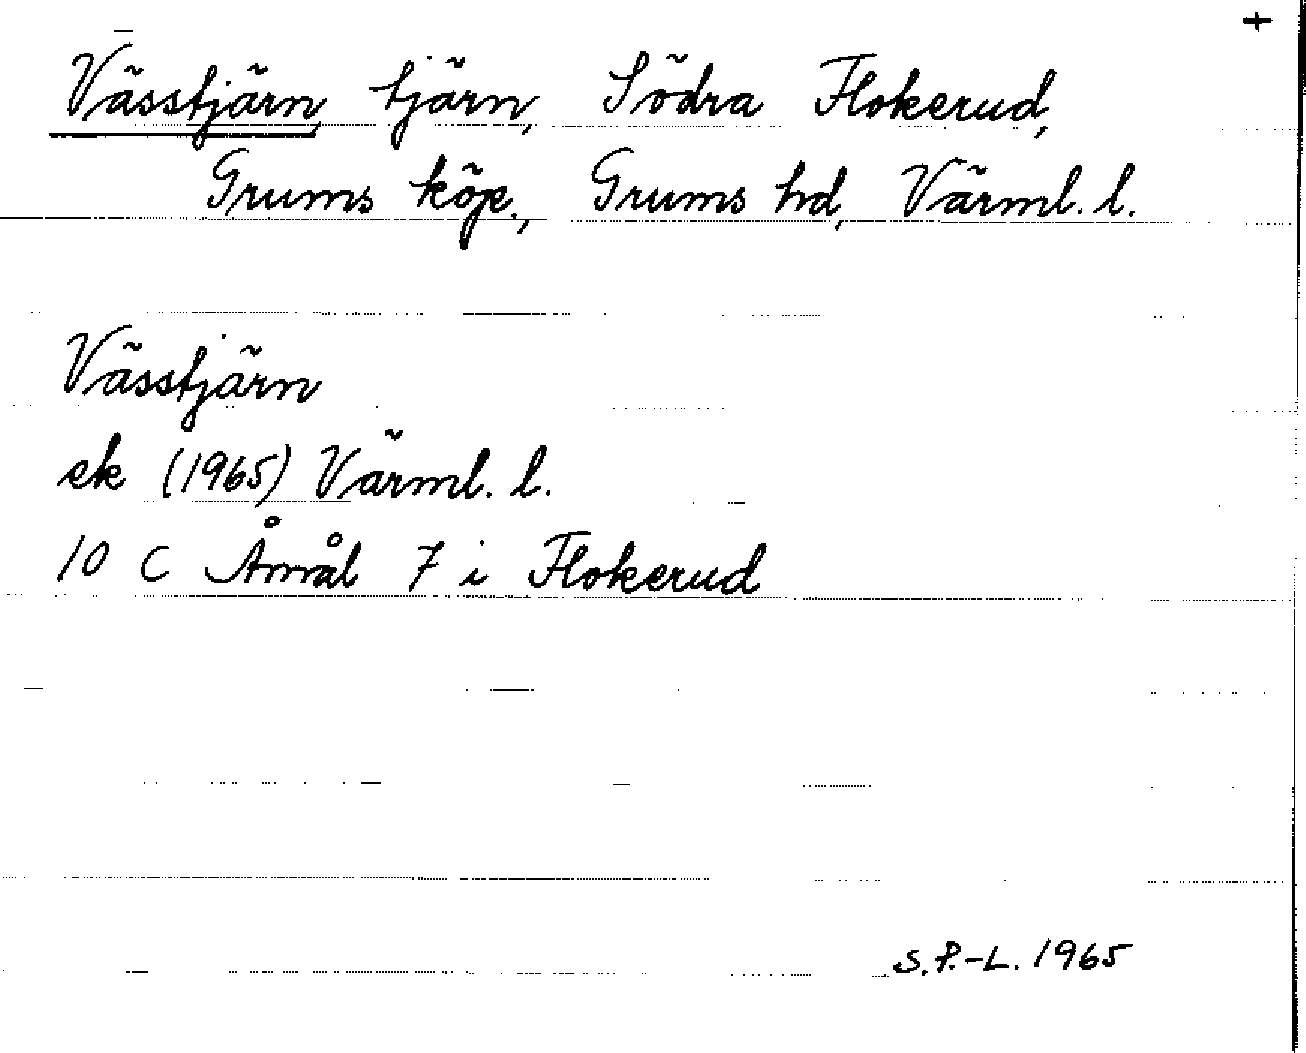 +
Vässtjärn, tjärn, Södra Flokerud,
Grums köp., Grums hd, Värml. l.
Vässtjärn
ek (1965) Värml. l.
10 C Åmål 7 i Flokerud
S.P.-L. 1965